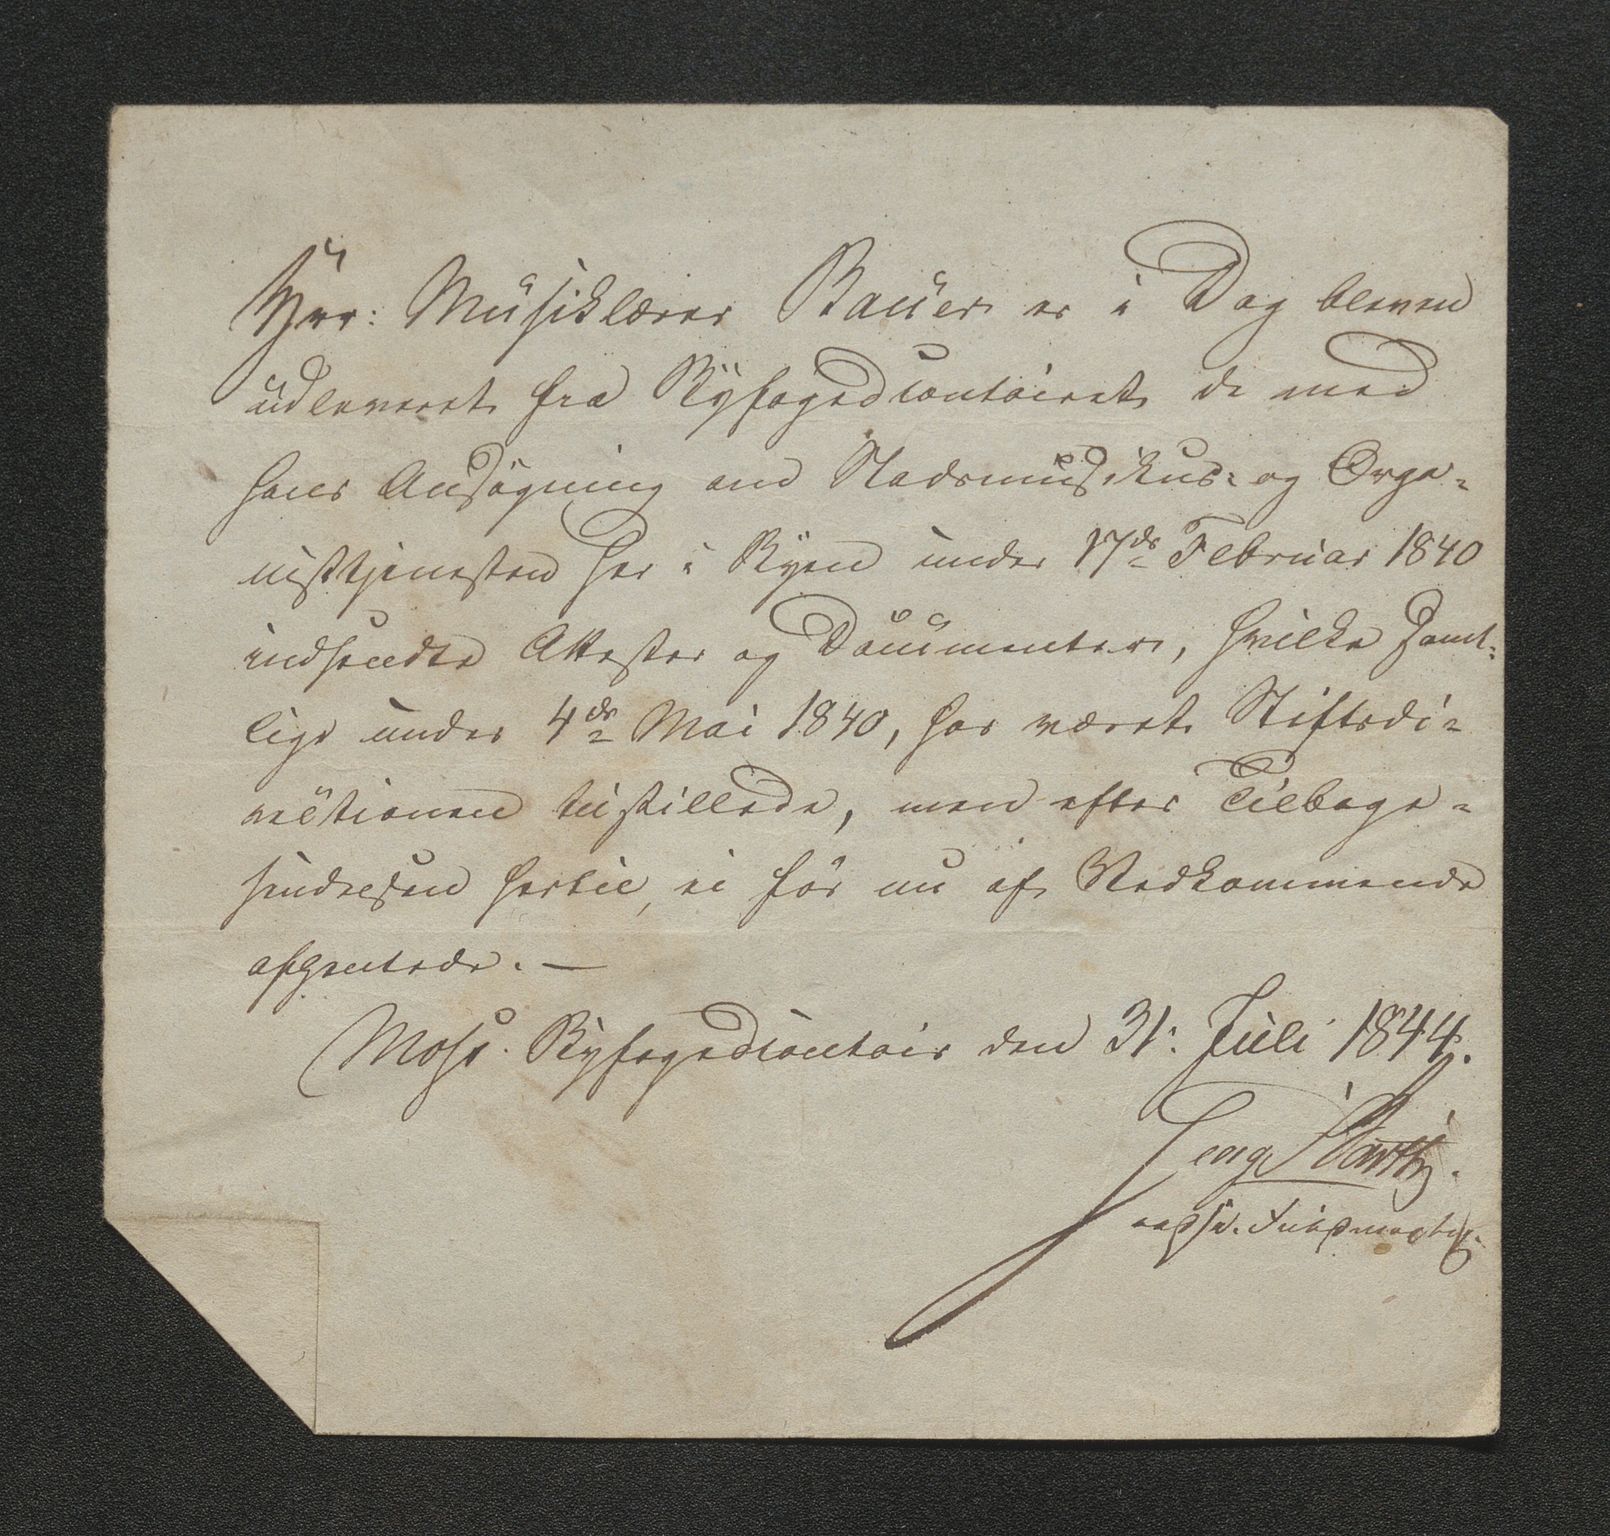 Hrr: Musiklærer Bauer er i Dag bleven
udleveret fra Byfogedcontoiret de med
hans Ansøgning om Stadsmusikus- og Orga-
nisttjenesten her i Byen under 17de Februar 1840
indsendte Attester og Documenter, hvilke samt-
lige under 4de Mai 1840, har været Stiftsdi-
rectionen tilstillede, men efter Tilbage-
sendelsen hertil, ei før nu af Vedkommende
afhentede. —
Moss Byfogedcontoir den 31: Juli 1844.
Fuldmægtig.